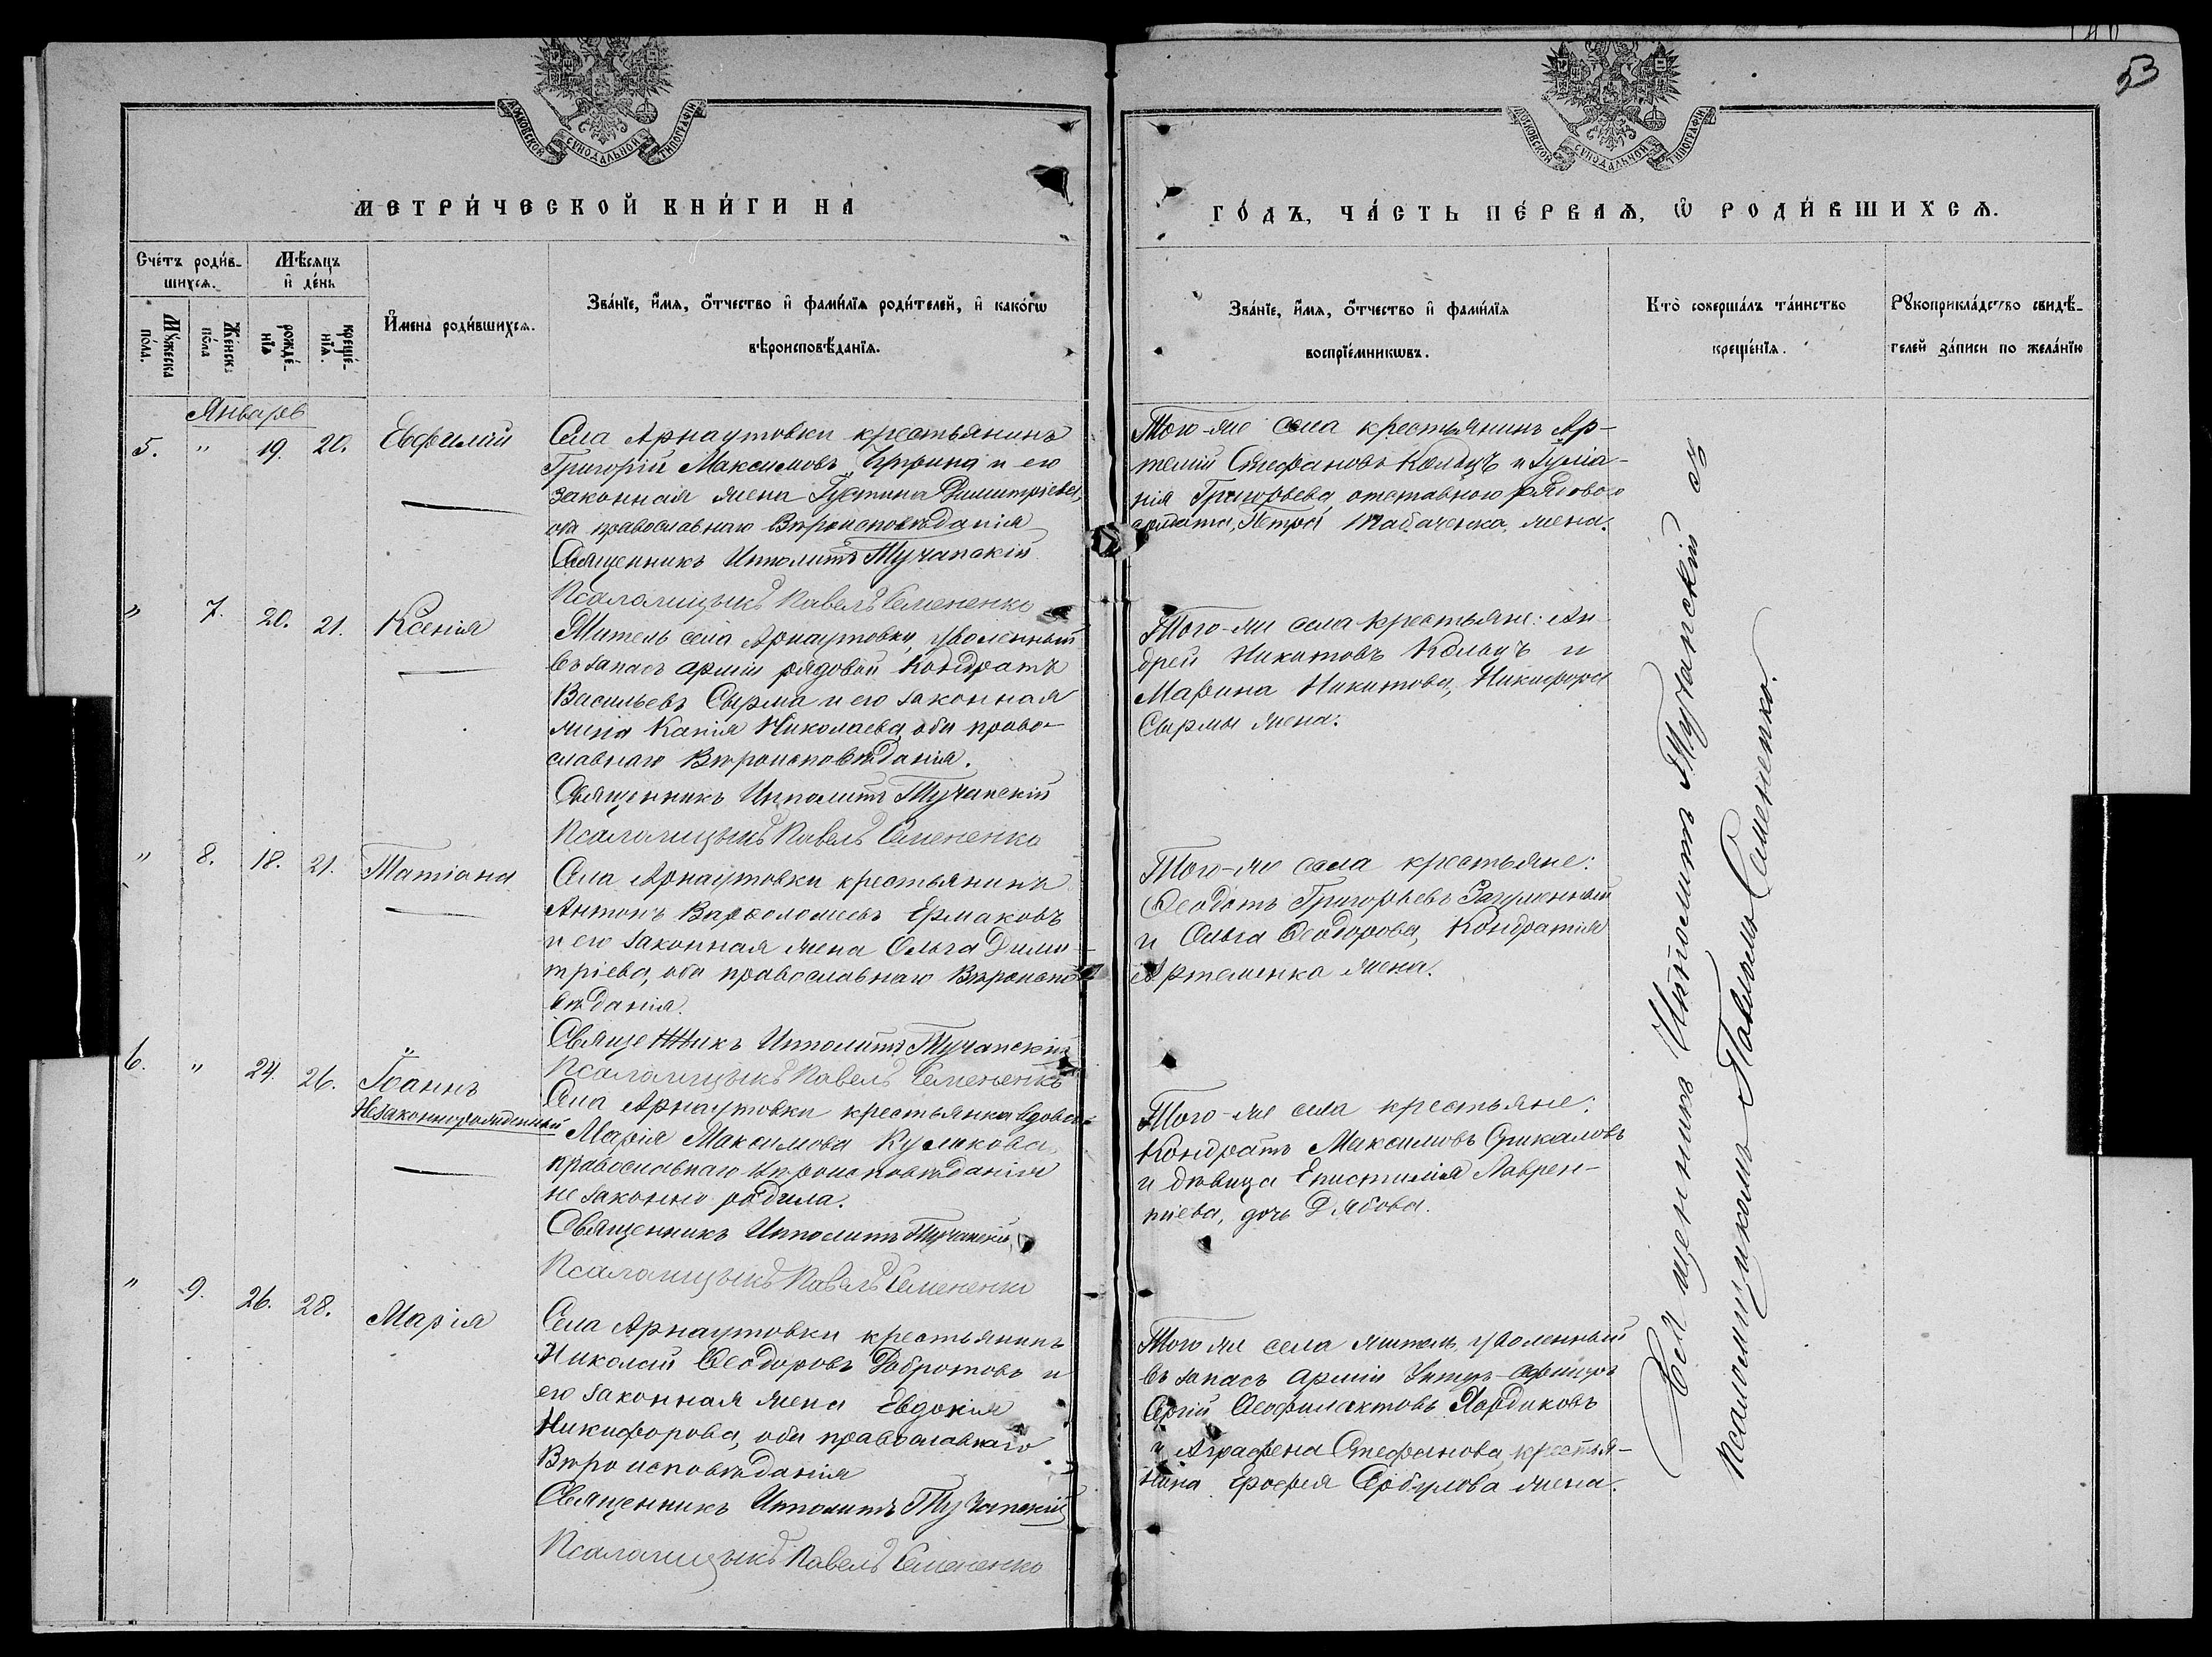 53
МОСКОВСКОЙ СѴНОДАЛЬНОЙ ТИПОГРАФІИ
МОСКОВСКОЙ СѴНОДАЛЬНОЙ ТИПОГРАФІИ
МЕТРИ́ЧЕСКОЙ КНИ́ГИ НА
ГО́ДЪ, ЧА́СТЬ ПЕ́РВАѦ, Ѽ РОДИ́ВШИХСѦ.
Сче́тъ роди́в-
шихсѧ.
Мѣ́сѧцъ
и҆ де́нь
Мꙋ́жеска
по́ла.
Же́нска
по́ла
рожде́-
нїѧ
креще́-
нїѧ.
И҆мена̀ роди́вшихсѧ.
Зва́нїе, и҆́мѧ, ѻ҆́тчество и҆ фами́лїѧ роди́телей, и҆ како́гѡ
вѣроисповѣ́данїѧ.
Зва́нїе, и҆́мѧ, ѻ҆́тчество и҆ фами́лїѧ
воспрїе́мникѡвъ.
Кто̀ соверша́лъ та́инство
креще́нїѧ.
Рꙋкоприкла́дство свидѣ́-
телей за́писи по жела́нїю
Январь
5. " 19. 20. Евфимій
Села Арнаутовки крестьянинъ
Григорій Максимовъ и его
законная жена Іустина Димитріева,
оба православнаго Вѣроисповѣданія
Священникъ Ипполитъ Тучапскій
Псаломщикъ Павелъ Семененко
Того-же села крестьянинъ Ар-
темій Стефановъ Кольцъ и Іуліа-
нія Григорьева, отставного рядового
солдата, Петра Табаченка, жена.
" 7. 20. 21. Ксенія
Житель села Арнаутовки, уволенный
въ запасъ арміи рядовой Кондратъ
Васильевъ Сырма и его законная
жена Капія Николаева, оба право-
славнаго Вѣроисповѣданія.
Священникъ Ипполитъ Тучапскій
Псаломщикъ Павелъ Семененко
Того-же села крестьяне: Ан-
дрей Никитовъ Кольцъ и
Марина Никитова, Никифора
Сырмы жена.
" 8. 18. 21. Татіана
Села Арнаутовки крестьянинъ
Антонъ Варѳоломеевъ Ермаковъ
и его законная жена Ольга Дими-
тріева, оба православнаго Вѣроиспо-
вѣданія.
Священникъ Ипполитъ Тучапскій
Псаломщикъ Павелъ Семененко
Того-же села крестьяне:
Ѳеодотъ Григорьевъ
и Ольга Ѳеодорова, Кондратія
Артеменка жена.
6. " 24. 26. Іоаннъ
Незаконнорожденный
Села Арнаутовки крестьянка вдова
Марія Максимова Куликова
православнаго Вѣроисповѣданія
не законно родила.
Священникъ Ипполитъ Тучапскій
Псаломщикъ Павелъ Семененко
Того-же села крестьяне:
Кондратъ Максимовъ
и дѣвица Епистимія Лаврен-
тіева, дочь Дябова.
" 9. 26. 28. Марія
Села Арнаутовки крестьянинъ
Николай Ѳеодоровъ Добротовъ и
его законная жена Евдокія
Никифорова, оба православнаго
Вѣроисповѣданія
Священникъ Ипполитъ Тучапскій
Псаломщикъ Павелъ Семененко
Того же села житель, уволенный
въ запасъ арміи Унтеръ-Офицеръ
Сергій Ѳеофилактовъ
и Аграфена Стефанова, крестья-
нина Ерофея жена.
Священникъ Ипполитъ Тучапскій съ
псаломщикомъ Павломъ Семененко.